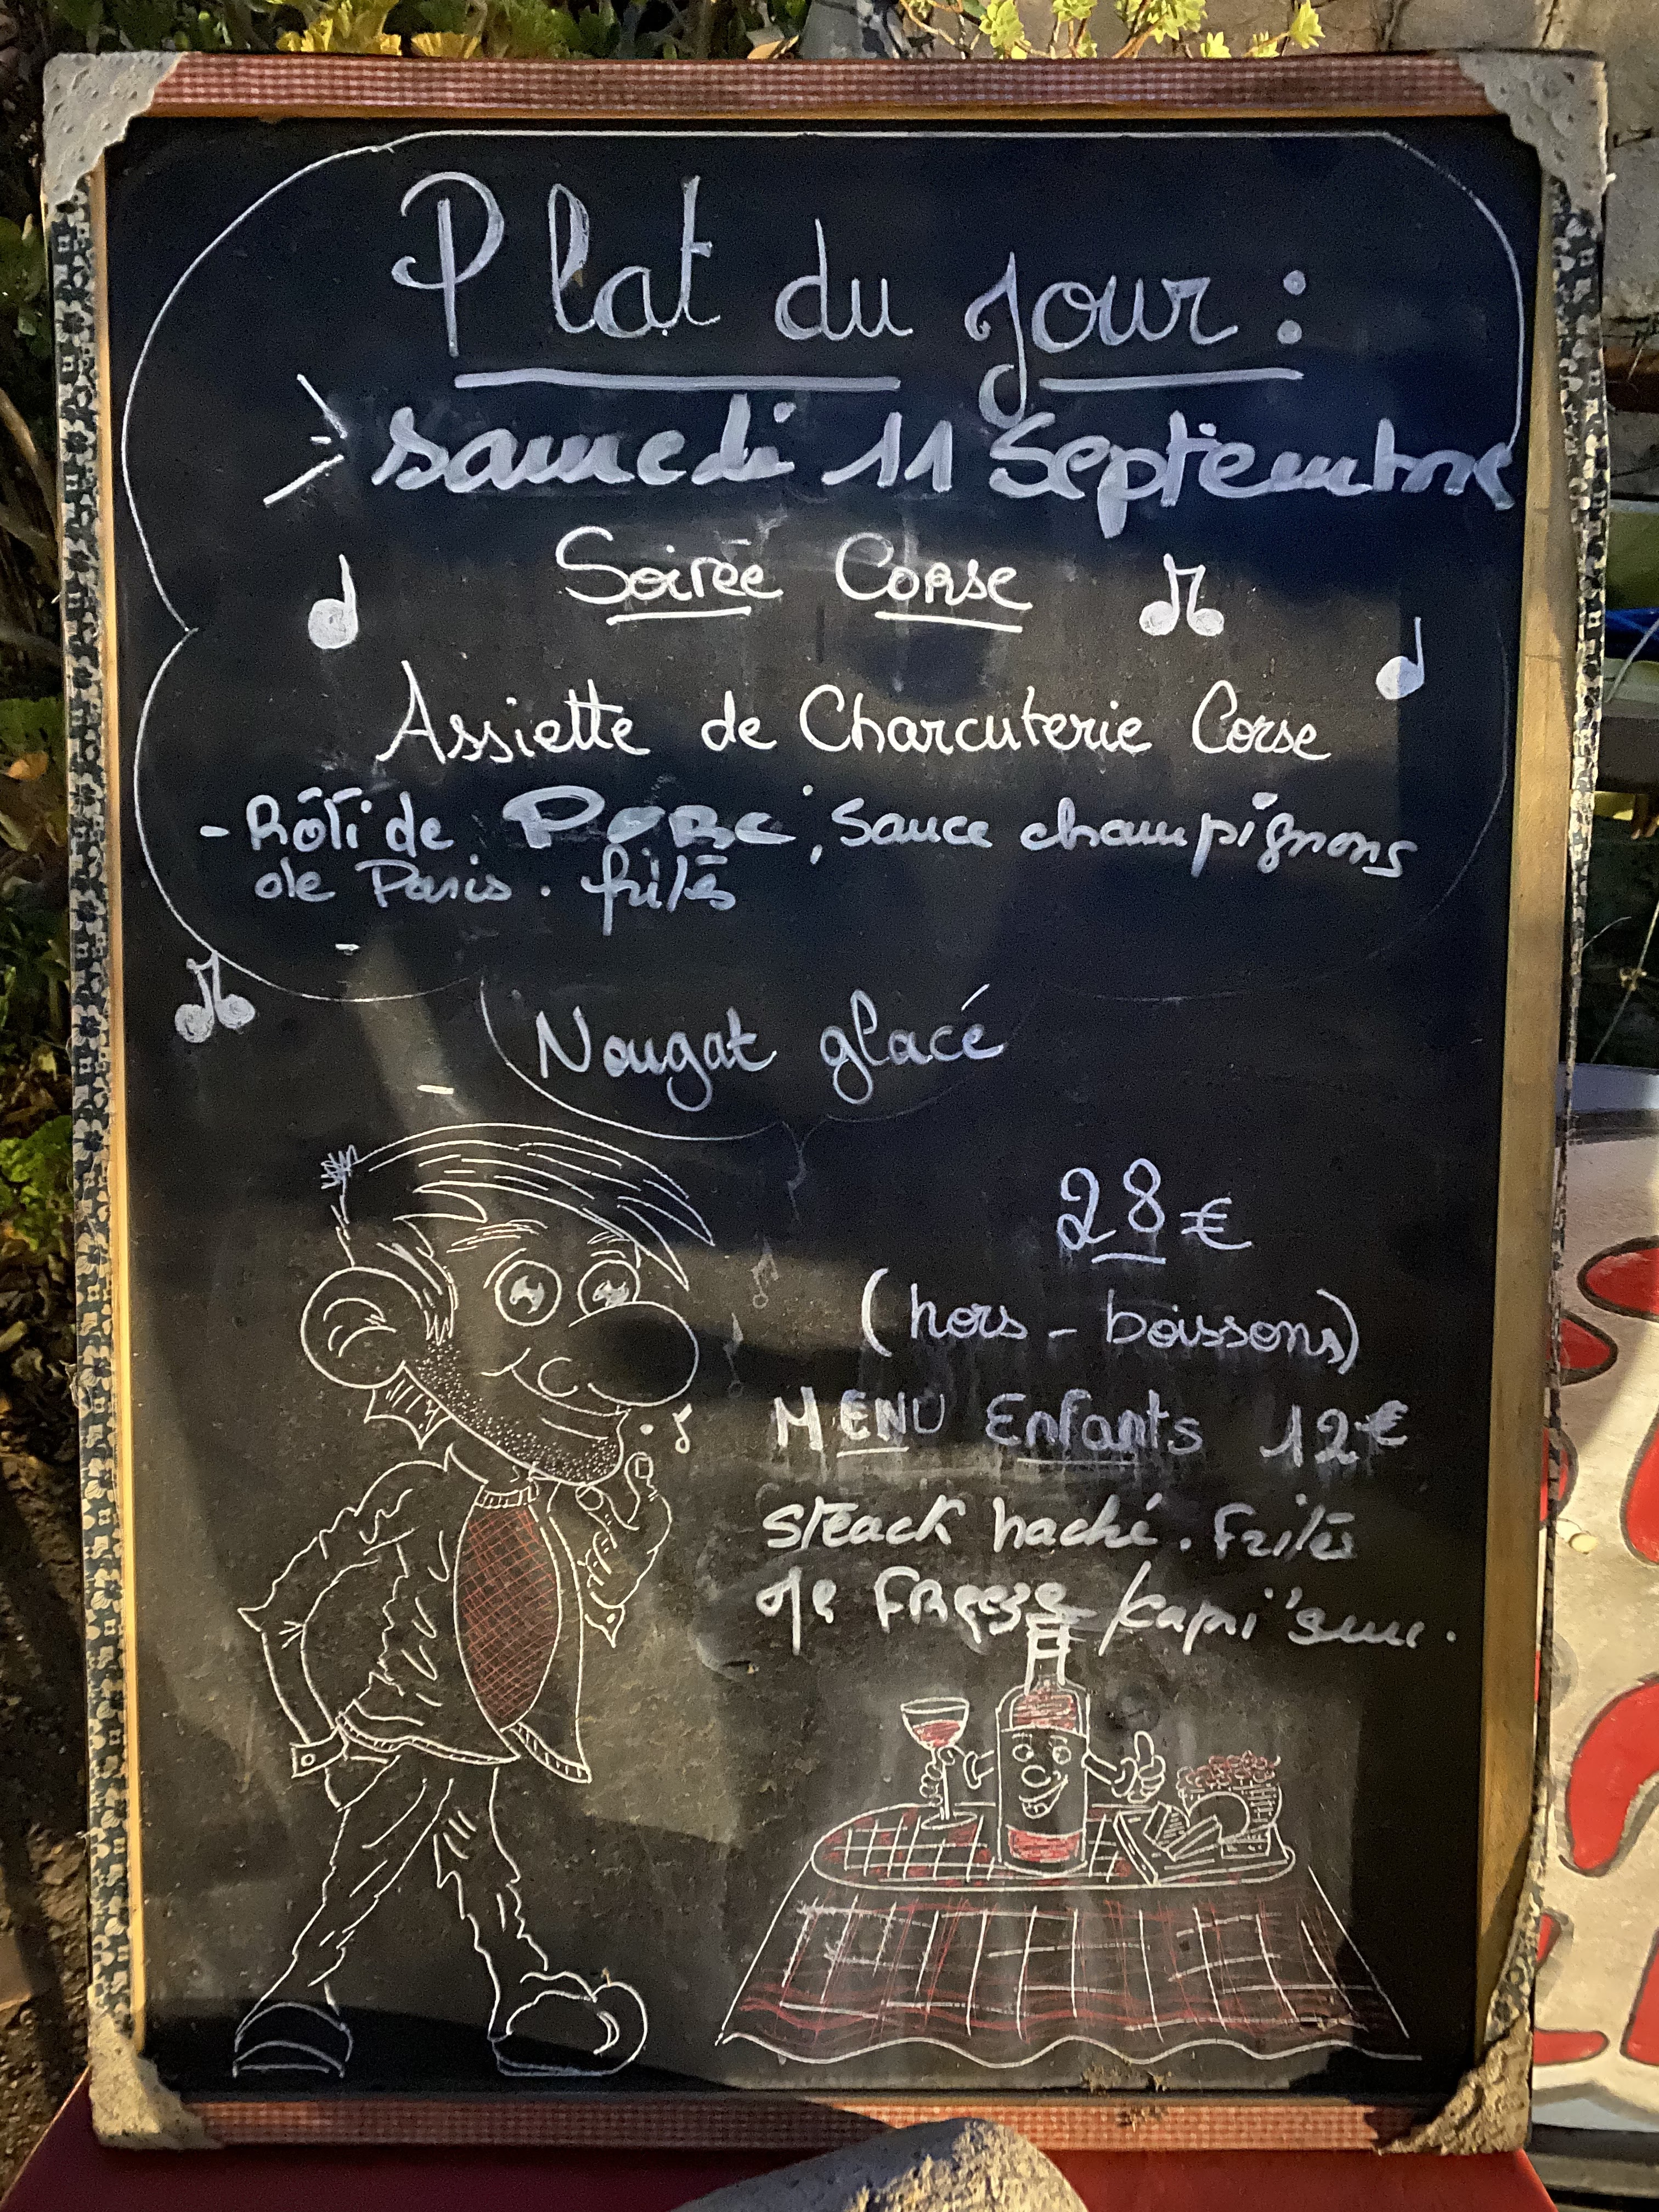 Plat du jour :
samedi 11 Septembre
Soirée Corse
Assiette de Charcuterie Corse
- Rôti de PORC, sauce champignons
de Paris. frites
Nougat glacé
28 €
(hors - boissons)
MENU Enfants 12 €
steack haché. Frites
/capri 'sun.